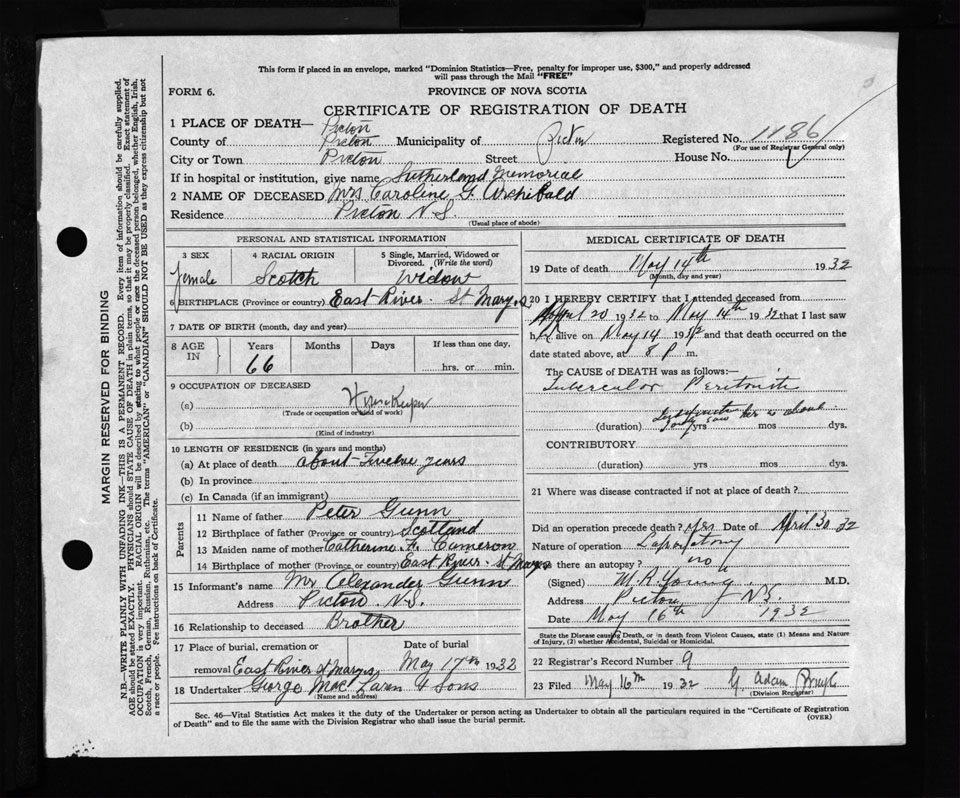 This form if placed in an envelope, marked "Dominion Statistics—Free, penalty for improper use, $300," and properly addressed
will pass through the Mail "FREE"
FORM 6.
PROVINCE OF NOVA SCOTIA
CERTIFICATE OF REGISTRATION OF DEATH
1 PLACE OF DEATH— Pictou
County of Pictou Municipality of Pictou Registered No. 1186
(For use of Registrar General only)
City or Town Pictou Street House No.
If in hospital or institution, give name Sutherland Memorial
2 NAME OF DECEASED Mrs Caroline G. Archibald
Residence Pictou N.S.
(Usual place of abode)
PERSONAL AND STATISTICAL INFORMATION
3 SEX 4 RACIAL ORIGIN 5 Single, Married, Widowed or
Divorced. (Write the word)
female Scotch Widow
6 BIRTHPLACE (Province or country) East River. St Marys
7 DATE OF BIRTH (month, day and year)
8 AGE IN Years Months Days If less than one day.
66 hrs. or min.
9 OCCUPATION OF DECEASED
(a) House Keeper
(Trade or occupation or kind of work)
(b)
(Kind of industry)
10 LENGTH OF RESIDENCE (in years and months)
(a) At place of death about Twelve years
(b) In province
(c) In Canada (if an immigrant)
Parents
11 Name of father Peter Gunn
12 Birthplace of father (Province or country) Scotland
13 Maiden name of mother Catherine Cameron
14 Birthplace of mother (Province or country) East River. St Marys
15 Informant's name Mr Alexander Gunn
Address Pictou. N.S.
16 Relationship to deceased Brother
17 Place of burial, cremation or Date of burial
removal East River St Marys May 17th 1932
18 Undertaker George MacLaren & Sons
(Name and address)
MEDICAL CERTIFICATE OF DEATH
19 Date of death May 14th 1932
(Month, day and year)
20 I HEREBY CERTIFY that I attended deceased from
April 20 1932 to May 14th 1932 that I last saw
her alive on May 14 1932 and that death occurred on the
date stated above, at 8 P m.
The CAUSE OF DEATH was as follows:—
Tubercular Peritonitis
(duration) yrs mos dys.
CONTRIBUTORY
(duration) yrs mos dys.
21 Where was disease contracted if not at place of death?
Did an operation precede death? yes Date of April 30 32
Nature of operation Laparotomy
Was there an autopsy? no
(Signed) M. R. Young M.D.
Address Pictou N.S.
Date May 16th 1932
State the Disease causing Death, or in death from Violent Causes, state (1) Means and Nature
of Injury, (2) whether Accidental, Suicidal or Homicidal.
22 Registrar's Record Number 9
23 Filed May 16th 1932 G. Adam
(Division Registrar)
Sec. 46—Vital Statistics Act makes it the duty of the Undertaker or person acting as Undertaker to obtain all the particulars required in the "Certificate of Registration
of Death" and to file the same with the Division Registrar who shall issue the burial permit.
(OVER)
MARGIN RESERVED FOR BINDING
N.B.—WRITE PLAINLY WITH UNFADING INK—THIS IS A PERMANENT RECORD. Every item of information should be carefully supplied.
AGE should be stated EXACTLY. PHYSICIANS should STATE CAUSE OF DEATH in plain terms, so that it may be properly classified. Exact statement of
OCCUPATION is very important. RACIAL ORIGIN will be described by stating to what people or race the deceased person belonged, whether English, Irish,
Scotch, French, German, Russian, Ruthenian, etc. The terms "AMERICAN" or "CANADIAN" SHOULD NOT BE USED as they express citizenship but not
a race or people. Fee instructions on back of Certificate.